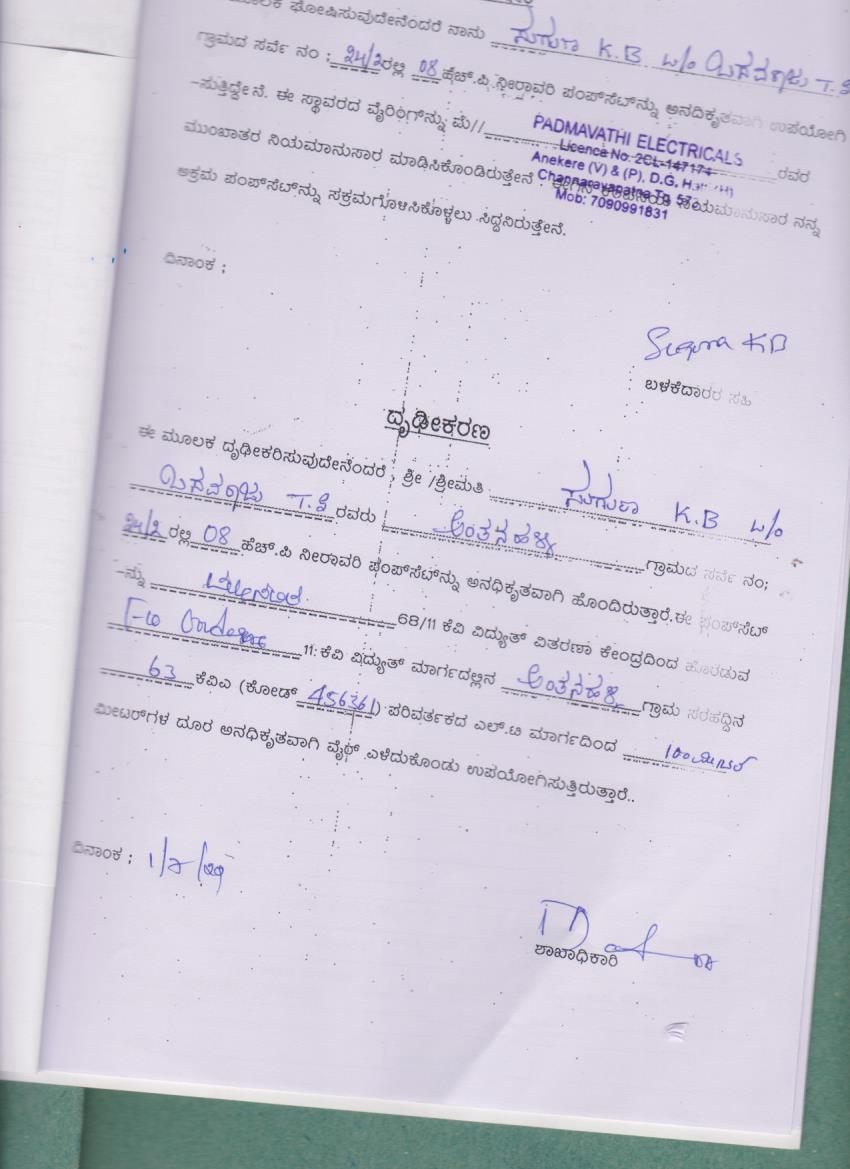 ಮೂಲಕ ಘೋಷಿಸುವುದೇನೆಂದರೆ ನಾನು ಸುಗುಣ K.B W/o ಬಸವರಾಜು T.
ಗ್ರಾಮದ ಸರ್ವೆ ನಂ ; 24/2ರಲ್ಲಿ 08 ಹೆಚ್.ಪಿ ನೀರಾವರಿ ಪಂಪ್‌ಸೆಟ್‌ನ್ನು ಅನದಿಕೃತವಾಗಿ ಉಪಯೋಗಿ
-ಸುತ್ತಿದ್ದೇನೆ. ಈ ಸ್ಥಾವರದ ವೈರಿಂಗ್‌ನ್ನು ಮೆ// ರವರ
PADMAVATHI ELECTRICALS
Licence No. 2CL-147174
Anekere (V) & (P), D.G. H
Channarayapatna Tq, 57
Mob: 7090991831
ಮುಂಖಾತರ ನಿಯಮಾನುಸಾರ ಮಾಡಿಸಿಕೊಂಡಿರುತ್ತೇನೆ . ನಿಯಮಾನುಸಾರ ನನ್ನ
ಅಕ್ರಮ ಪಂಪ್‌ಸೆಟ್‌ನ್ನು ಸಕ್ರಮಗೊಳಿಸಿಕೊಳ್ಳಲು ಸಿದ್ದನಿರುತ್ತೇನೆ.
ದಿನಾಂಕ ;
Suguna KB
ಬಳಕೆದಾರರ ಸಹಿ
ದೃಢೀಕರಣ
ಈ ಮೂಲಕ ದೃಢೀಕರಿಸುವುದೇನೆಂದರೆ , ಶ್ರೀ /ಶ್ರೀಮತಿ ಸುಗುಣ K.B W/o
ಬಸವರಾಜು T. ರವರು ಅಂತನಹಳ್ಳಿ ಗ್ರಾಮದ ಸರ್ವೆ ನಂ;
24/2 ರಲ್ಲಿ 08 ಹೆಚ್.ಪಿ ನೀರಾವರಿ ಪಂಪ್‌ಸೆಟ್‌ನ್ನು ಅನಧಿಕೃತವಾಗಿ ಹೊಂದಿರುತ್ತಾರೆ.ಈ ಪಂಪ್‌ಸೆಟ್
-ನ್ನು 68/11 ಕೆವಿ ವಿದ್ಯುತ್ ವಿತರಣಾ ಕೇಂದ್ರದಿಂದ ಹೊರಡುವ
F-10 11 ಕೆವಿ ವಿದ್ಯುತ್ ಮಾರ್ಗದಲ್ಲಿನ ಅಂತನಹಳ್ಳಿ ಗ್ರಾಮ ಸರಹದ್ದಿನ
63 ಕೆವಿಎ (ಕೋಡ್ 456361) ಪರಿವರ್ತಕದ ಎಲ್.ಟಿ ಮಾರ್ಗದಿಂದ 100 ಮೀಟರ
ಮೀಟರ್‌ಗಳ ದೂರ ಅನಧಿಕೃತವಾಗಿ ವೈರ್ ಎಳೆದುಕೊಂಡು ಉಪಯೋಗಿಸುತ್ತಿರುತ್ತಾರೆ..
ದಿನಾಂಕ ;
ಶಾಖಾಧಿಕಾರಿ